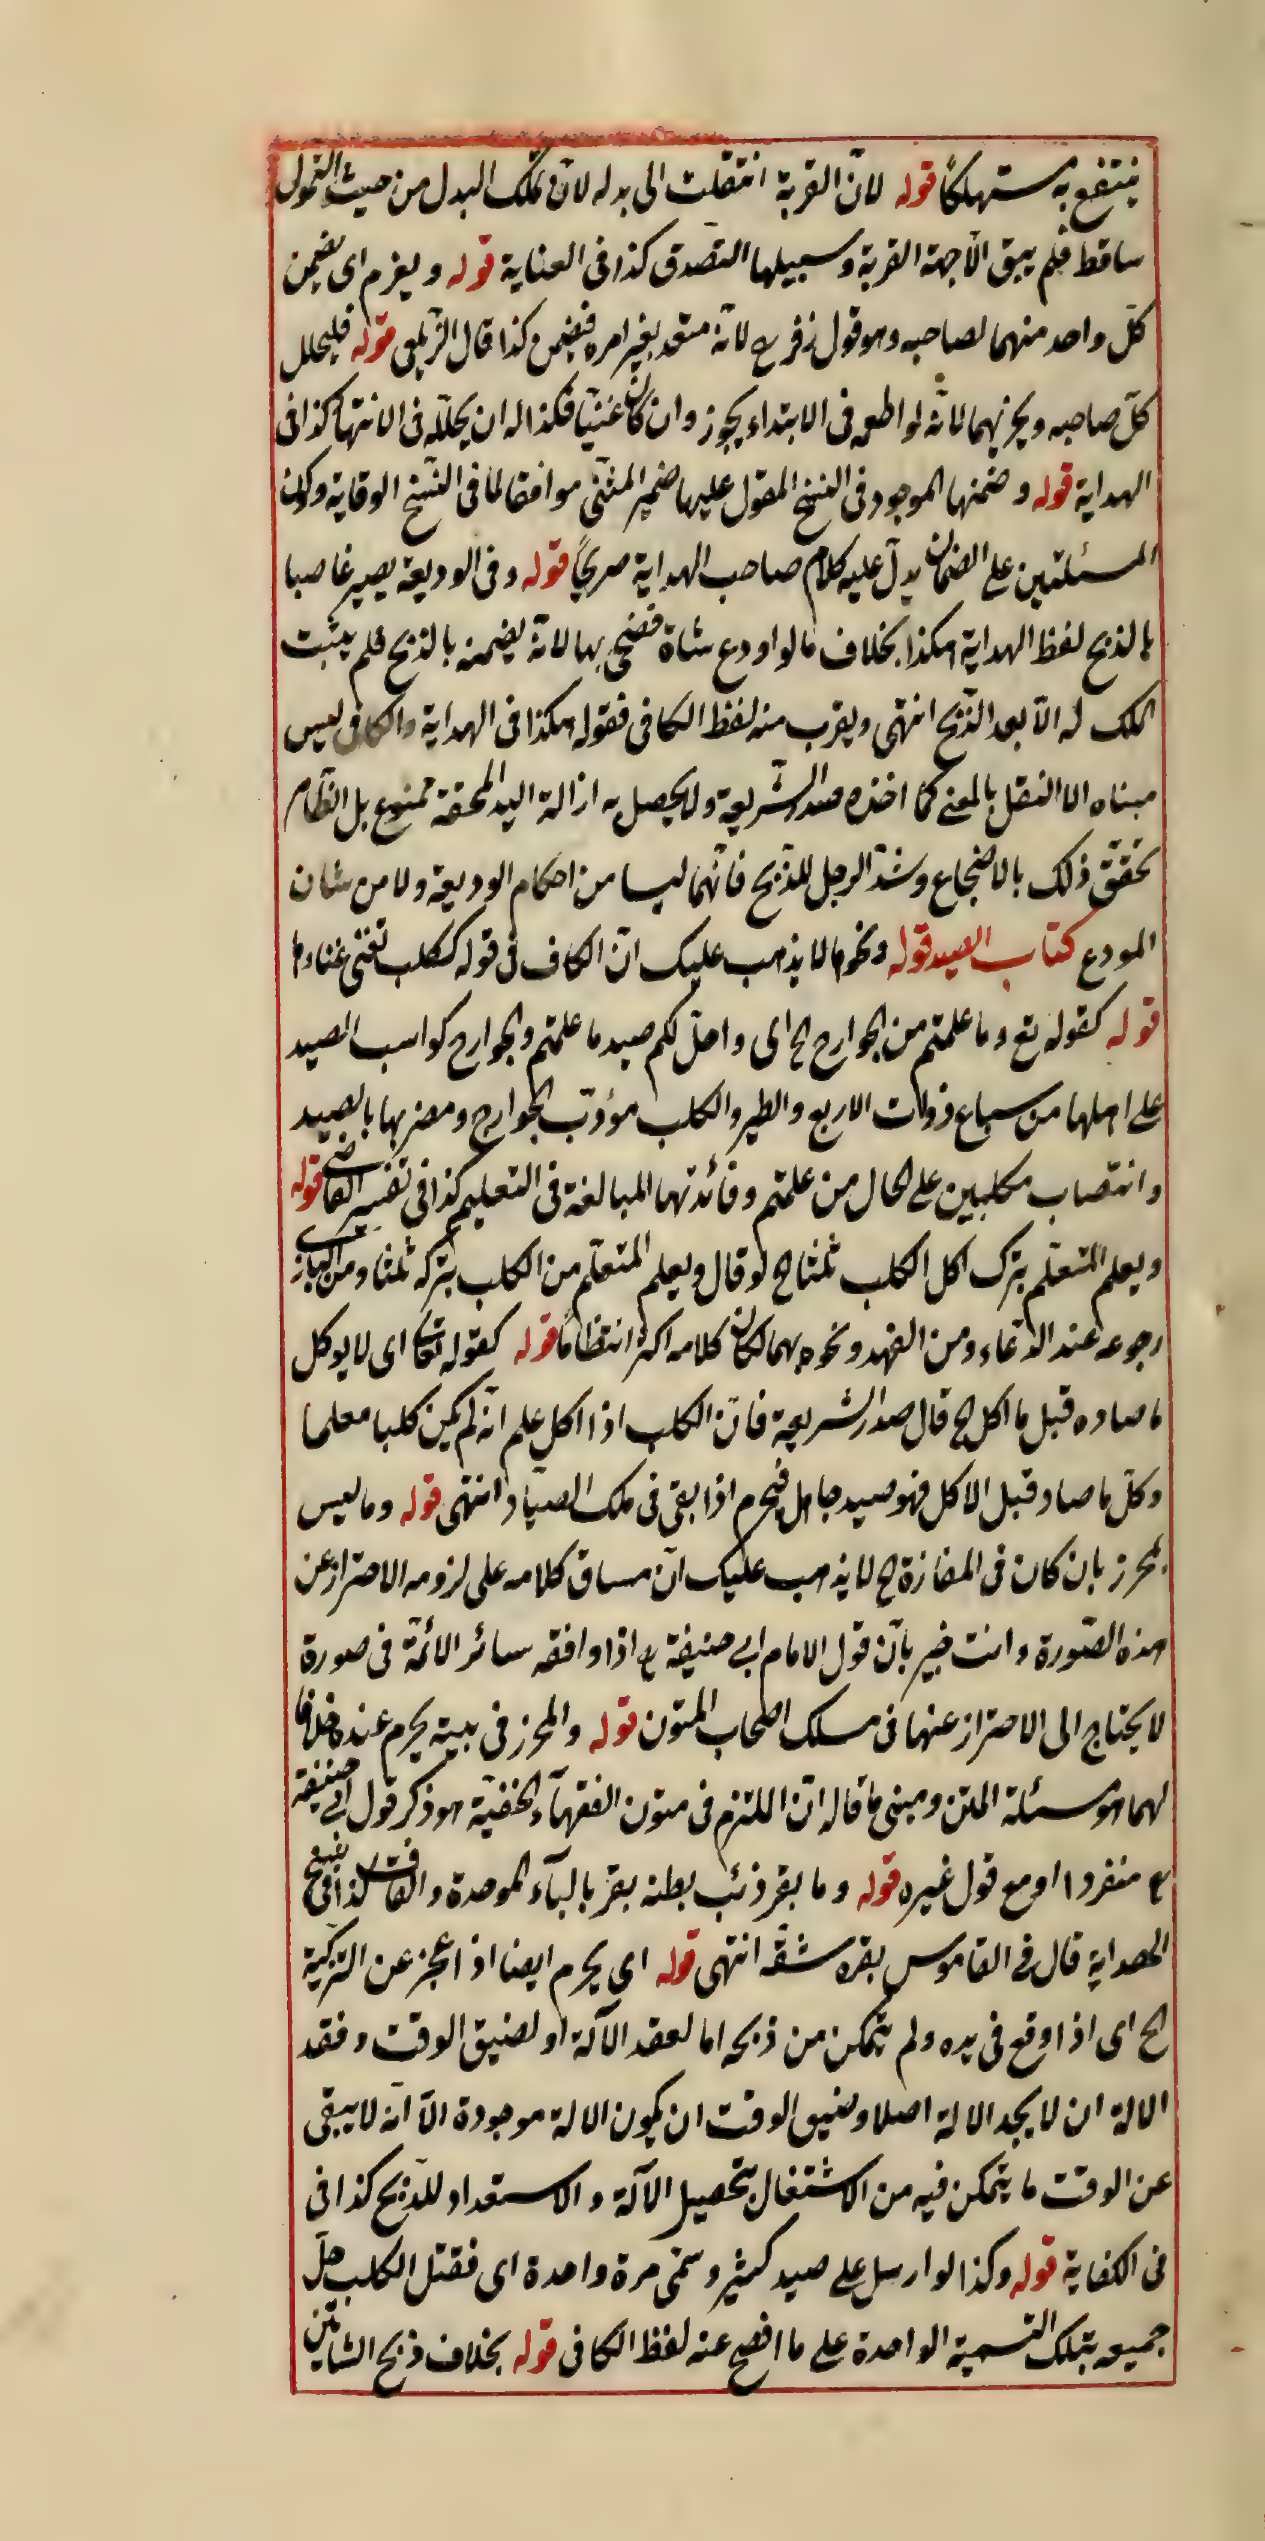 ينتفع به مستهلكا قوله لانّ القربة انتقلت الى بدله لانّ تملّك البدل من حيث التمول
ساقط فلم يبق الّا جهة القربة وسبيلها التصدق كذا فى العناية قوله ويغرم اى يضمن
كلّ واحد منهما لصاحبه وهو قول زفر رح لانّه متعد بغير امره فيضمن كذا قال الزيلعى قوله فليحلل
كلّ صاحبه ويجزيهما لانّه لو اطعمه فى الابتداء يجوز وان كان غنيّا فكذا له ان يحلّله فى الانتهاء كذا فى
الهداية قوله وضمنها الموجود فى النسخ المقول عليها ضمير المثنّى موافقا لما فى النّسخ الوقاية وكون
المسئلتين على الضمان يدلّ عليه كلام صاحب الهداية صريحًا قوله وفى الوديعة يصير غاصبا
بالذبح لفظ الهداية هكذا بخلاف ما لو اودع شاة فضحى بها لانّه يضمنه بالذبح فلم يثبت
الملك له الّا بعد الذّبح انتهى ويقرب منه لفظ الكافى فقوله هكذا فى الهداية والكافى ليس
مبناه الا النقل بالمعنى كما اخذه صدر الشّريعة ولا يحصل به ازالة اليد المحقة ممنوع بل الظّاهر
تحقّق ذلك بالاضجاع وشدّ الرجل للذّبح فانّهما ليسا من احكام الوديعة ولا من شان
المودع كتاب الصيد قوله ونحوها لا يذهب عليك انّ الكاف فى قوله ككلب تغنى غناءها
قوله كقوله تع وما علمتم من الجوارح الخ اى واحلّ لكم صيد ما علمتم والجوارح كواسب الصيد
على اهلها من سباع ذوات الاربع والطير والكلب مؤدّب الجوارح ومضربها بالصيد
وانتصاب مكلبين على الحال من علمتم وفائدتها المبالغة فى التعليم كذا فى تفسير القاضى قوله
ويعلم المتعلّم بترك اكل الكلب ثلثا الخ لو قال ويعلم المتعلّم من الكلب بتركه ثلثا ومن البازى
رجوعه عند الدّعاء ومن الفهد ونحوه بهما لكان كلامه اكثر انتظاما قوله كقوله تعا اى لا يوكل
ما صاده قبل ما اكل الخ قال صدر الشّريعة فانّ الكلب اذا اكل علم انّه لم يكن كلبا معلما
وكلّ ما صاد قبل الاكل فهو صيد جاهل فيحرم اذا بقى فى ملك الصيّاد انتهى قوله وما ليس
بمحرز بان كان فى المفازة الخ لا يذهب عليك انّ مساق كلامه على لزومه الاحتراز عن
هذه الصّورة وانت خبير بانّ قول الامام ابى حنيفة رح اذا وافقه سائر الائمّة فى صورة
لا يحتاج الى الاحتراز عنها فى مسلك اصحاب المتون قوله والمحرز فى بيته يحرم عنده خلافا
لهما هو مسئلة المتن ومبنى ما قاله انّ اللتزم فى متون الفقهآء الحنفيّة هو ذكر قول ابى حنيفة
رح منفردا او مع قول غيره قوله وما بقر ذئب بطنه بقر بالبآء الموحدة والقاف كذا فى بعض
الهداية قال فى القاموس بقره شقّه انتهى قوله اى يحرم ايضا اذا عجز عن التزكية
الخ اى اذا وقع فى يده ولم يتمكن من ذبحه اما لفقد الآلة او لضيق الوقت وفقد
الالة ان لا يجد الالة اصلا وضيق الوقت ان يكون الالة موجودة الّا انّه لا يبقى
عن الوقت ما يتمكن فيه من الاشتغال بتحصيل الآلة والاستعداد للذّبح كذا فى
فى الكفاية قوله وكذا لو ارسل على صيد كثير وسمّى مرة واحدة اى فقتل الكلب حلّ
جميعه بتلك التسمية الواحدة على ما افصح عنه لفظ الكافى قوله بخلاف ذبح الشاتين